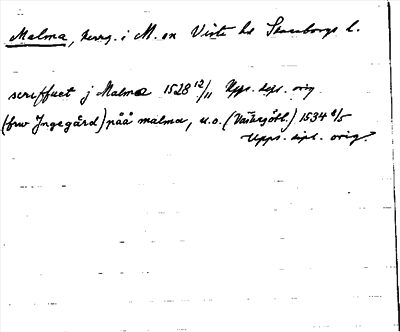 Malma, herrg. i M. sn Viste hd Skaraborgs l.
scriffuet j Malma 1528 12/11 Upps. dipl. orig.
(frw Jngegård) påå malma, u.o. (Västergötl.) 1534 8/5
Upps. dipl. orig.